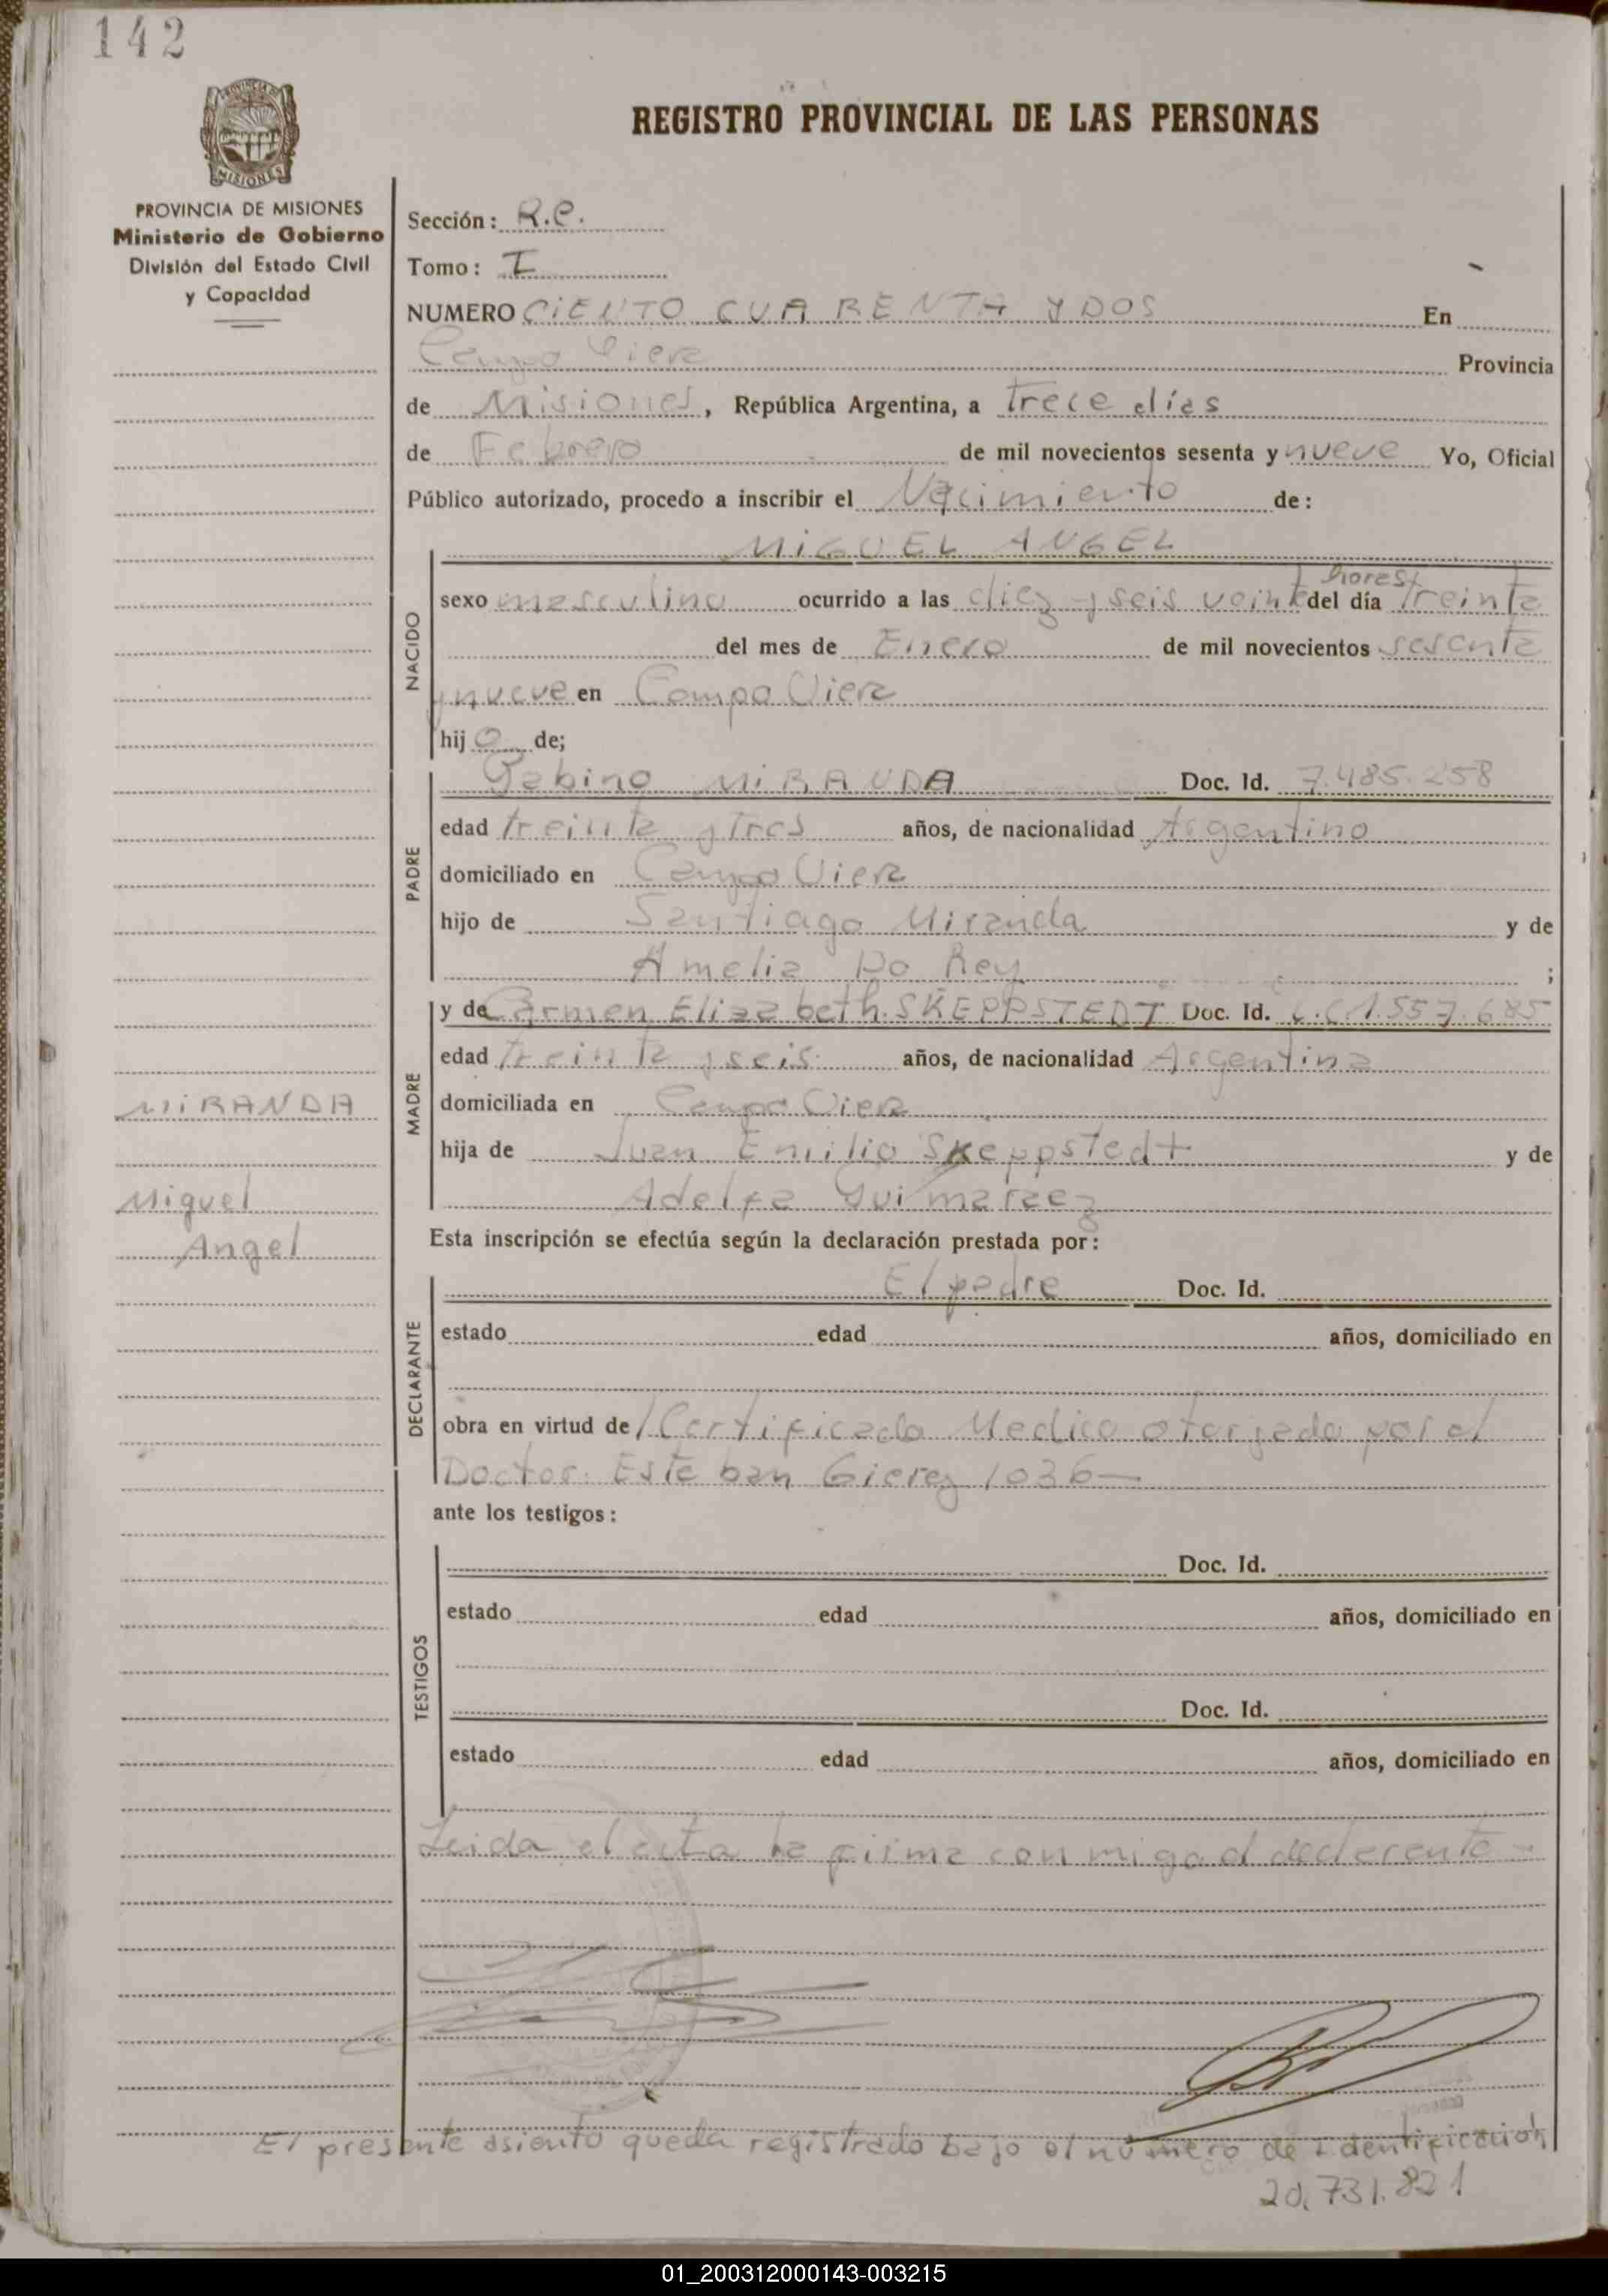 142
PROVINCIA DE MISIONES
Ministerio de Gobierno
División del Estado Civil
y Capacidad
REGISTRO PROVINCIAL DE LAS PERSONAS
Sección: R.C.
Tomo: I
NUMERO CIENTO CUARENTA Y DOS En
Campo Viera Provincia
de Misiones, República Argentina, a trece dias
de Febrero de mil novecientos sesenta y nueve Yo, Oficial
Público autorizado, procedo a inscribir el Nacimiento de:
MIGUEL ANGEL
horas
sexo masculino ocurrido a las diez y seis veinte del día treinta
del mes de Enero de mil novecientos sesenta
y nueve en Campo Viera
hijo de;
Gabino MIRANDA Doc. Id. 7.485.258
edad treinta y Tres años, de nacionalidad Argentino
domiciliado en Campo Viera
hijo de Santiago Miranda y de
Amelia Do Rey ;
y de Carmen Elizabeth SKEPPSTEDT Doc. Id. L.C 1.557.685
edad treinta y seis años, de nacionalidad Argentina
domiciliada en Campo Viera
hija de Juan Emilio Skeppstedt y de
Adelfa Guimaraez
Esta inscripción se efectúa según la declaración prestada por:
El padre Doc. Id.
estado edad años, domiciliado en
obra en virtud de/ Certificado Medico otorgado por el
Doctor. Esteban Gierez 1036—
ante los testigos:
Doc. Id.
estado edad años, domiciliado en
Doc. Id.
estado edad años, domiciliado en
Leida el acta la firma con migo el declarente -
NACIDO
PADRE
MADRE
DECLARANTE
TESTIGOS
MIRANDA
Miguel
Angel
El presente asiento queda registrado bajo el número de Identificación
20.731.821
01_200312000143-003215